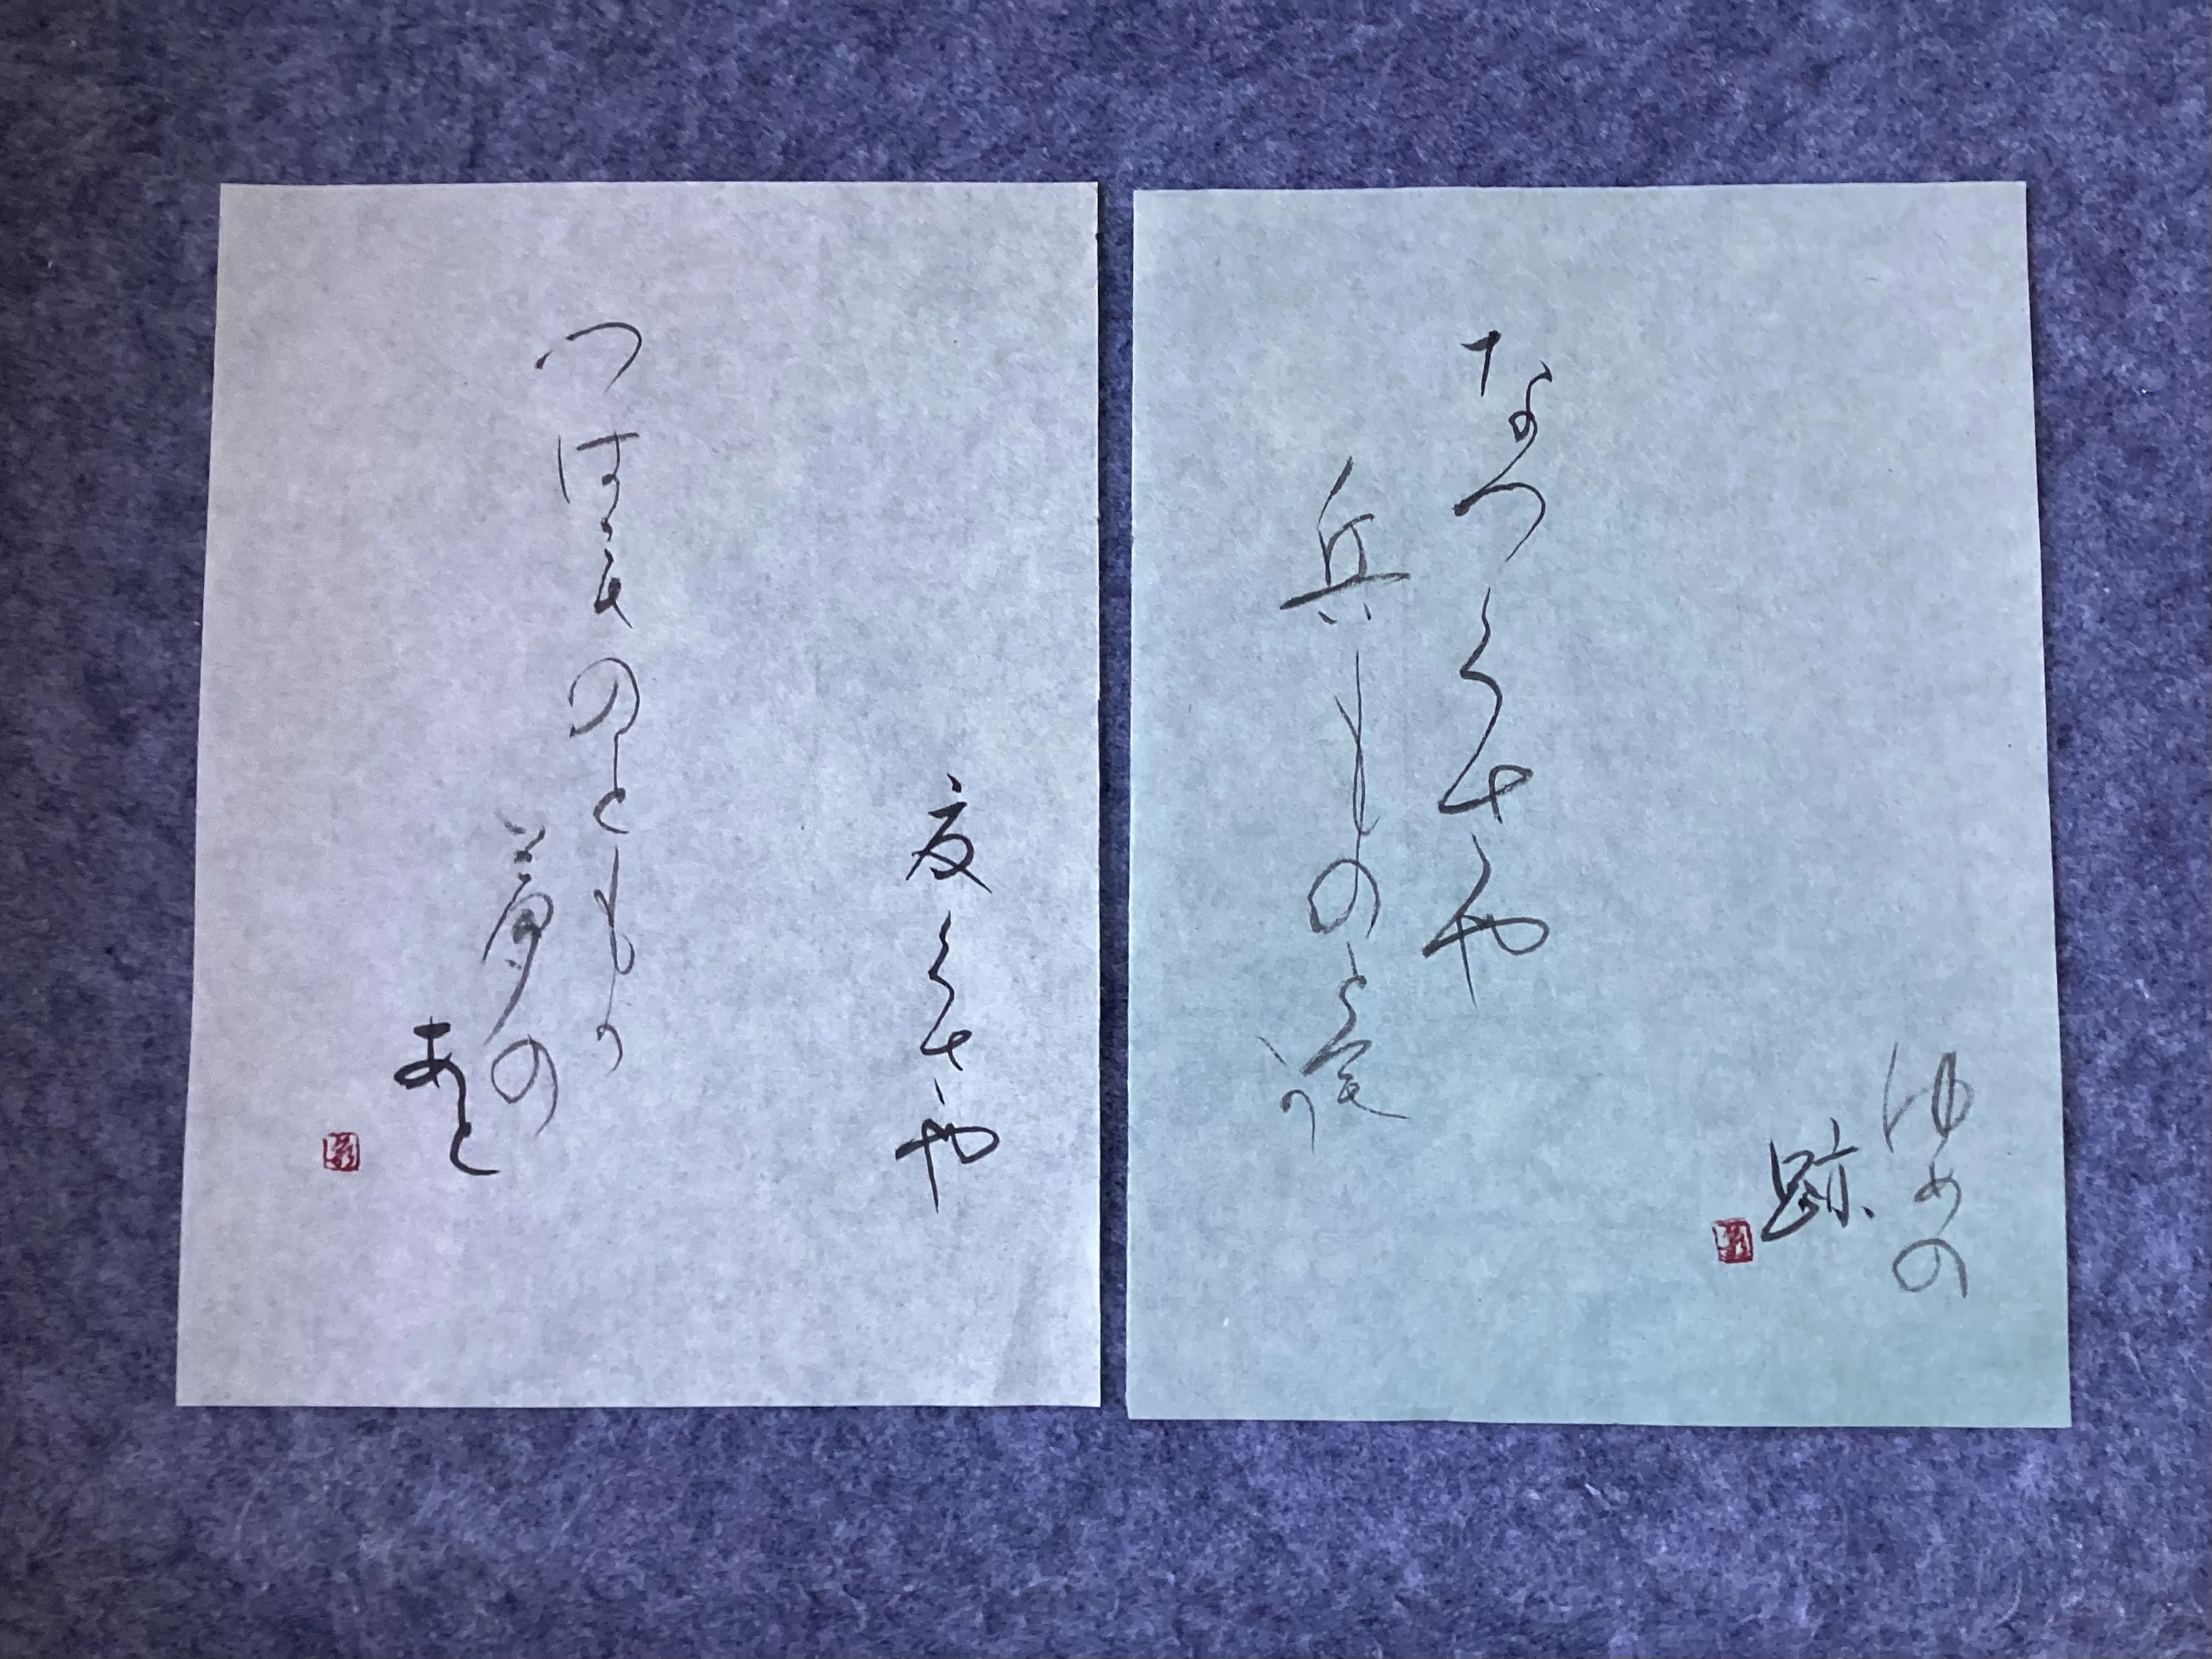 なつくさや
兵ものともか
ゆめの
跡
夏くさや
つはものともか
夢の
あと